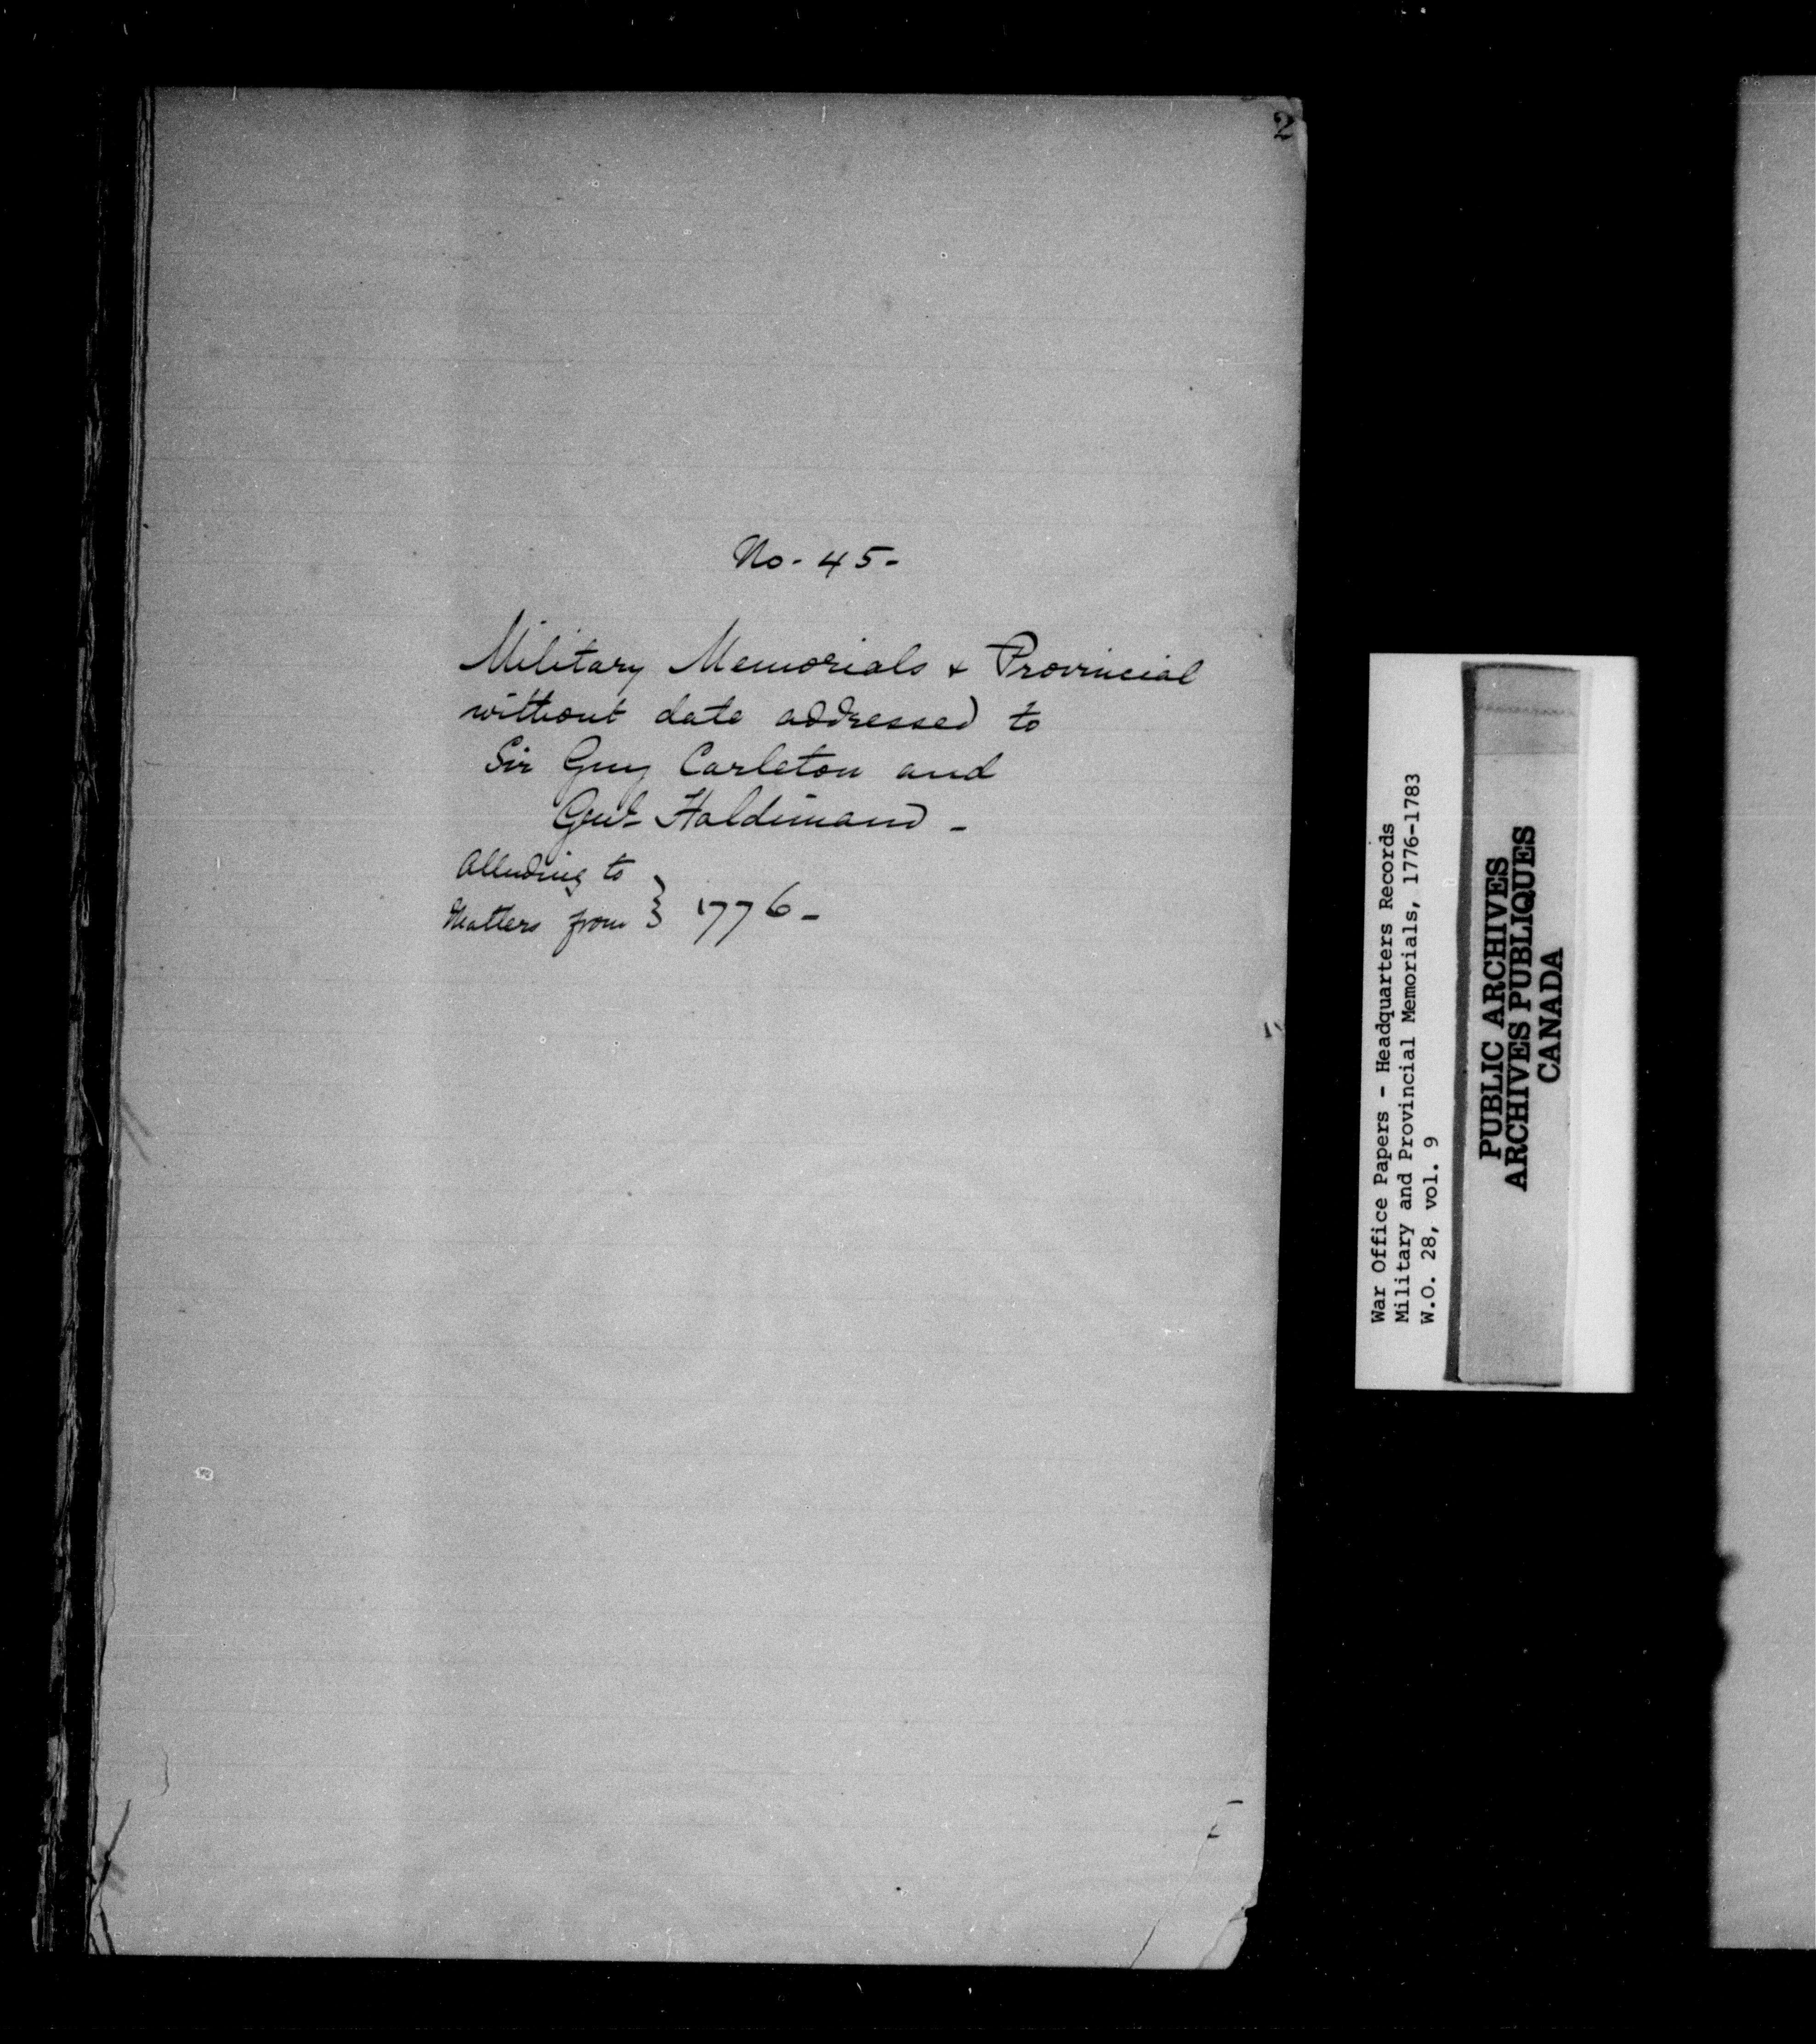 2
No. 45-
Military Memorials & Provincial
without date addressed to
Sir Guy Carleton and
Genl. Haldimand -
Alluding to
Matters from } 1776-
War Office Papers - Headquarters Records
Military and Provincial Memorials, 1776-1783
W.O. 28, vol. 9
PUBLIC ARCHIVES
ARCHIVES PUBLIQUES
CANADA